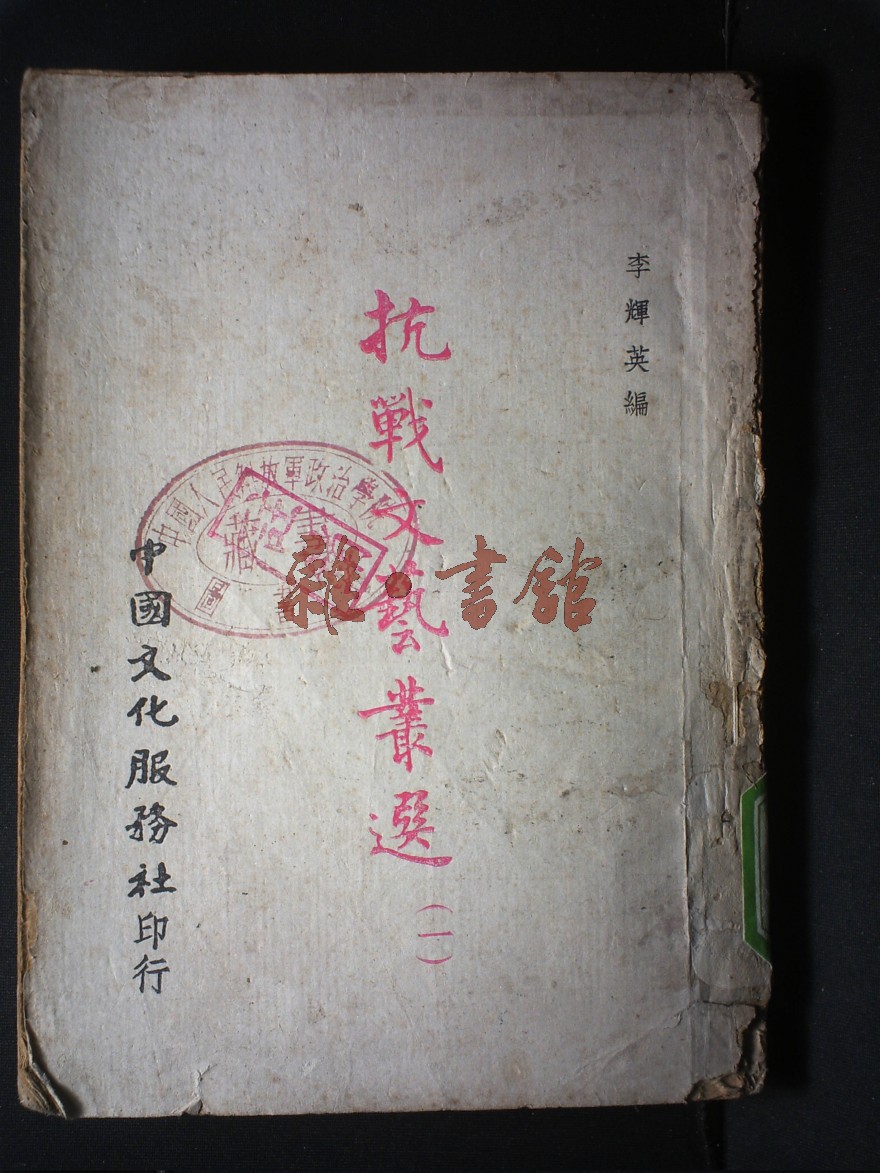 李輝英編
抗戰文藝叢選
(一)
中國文化服務社印行
中國人民解放軍政治學院
圖書
藏書
雜·書館